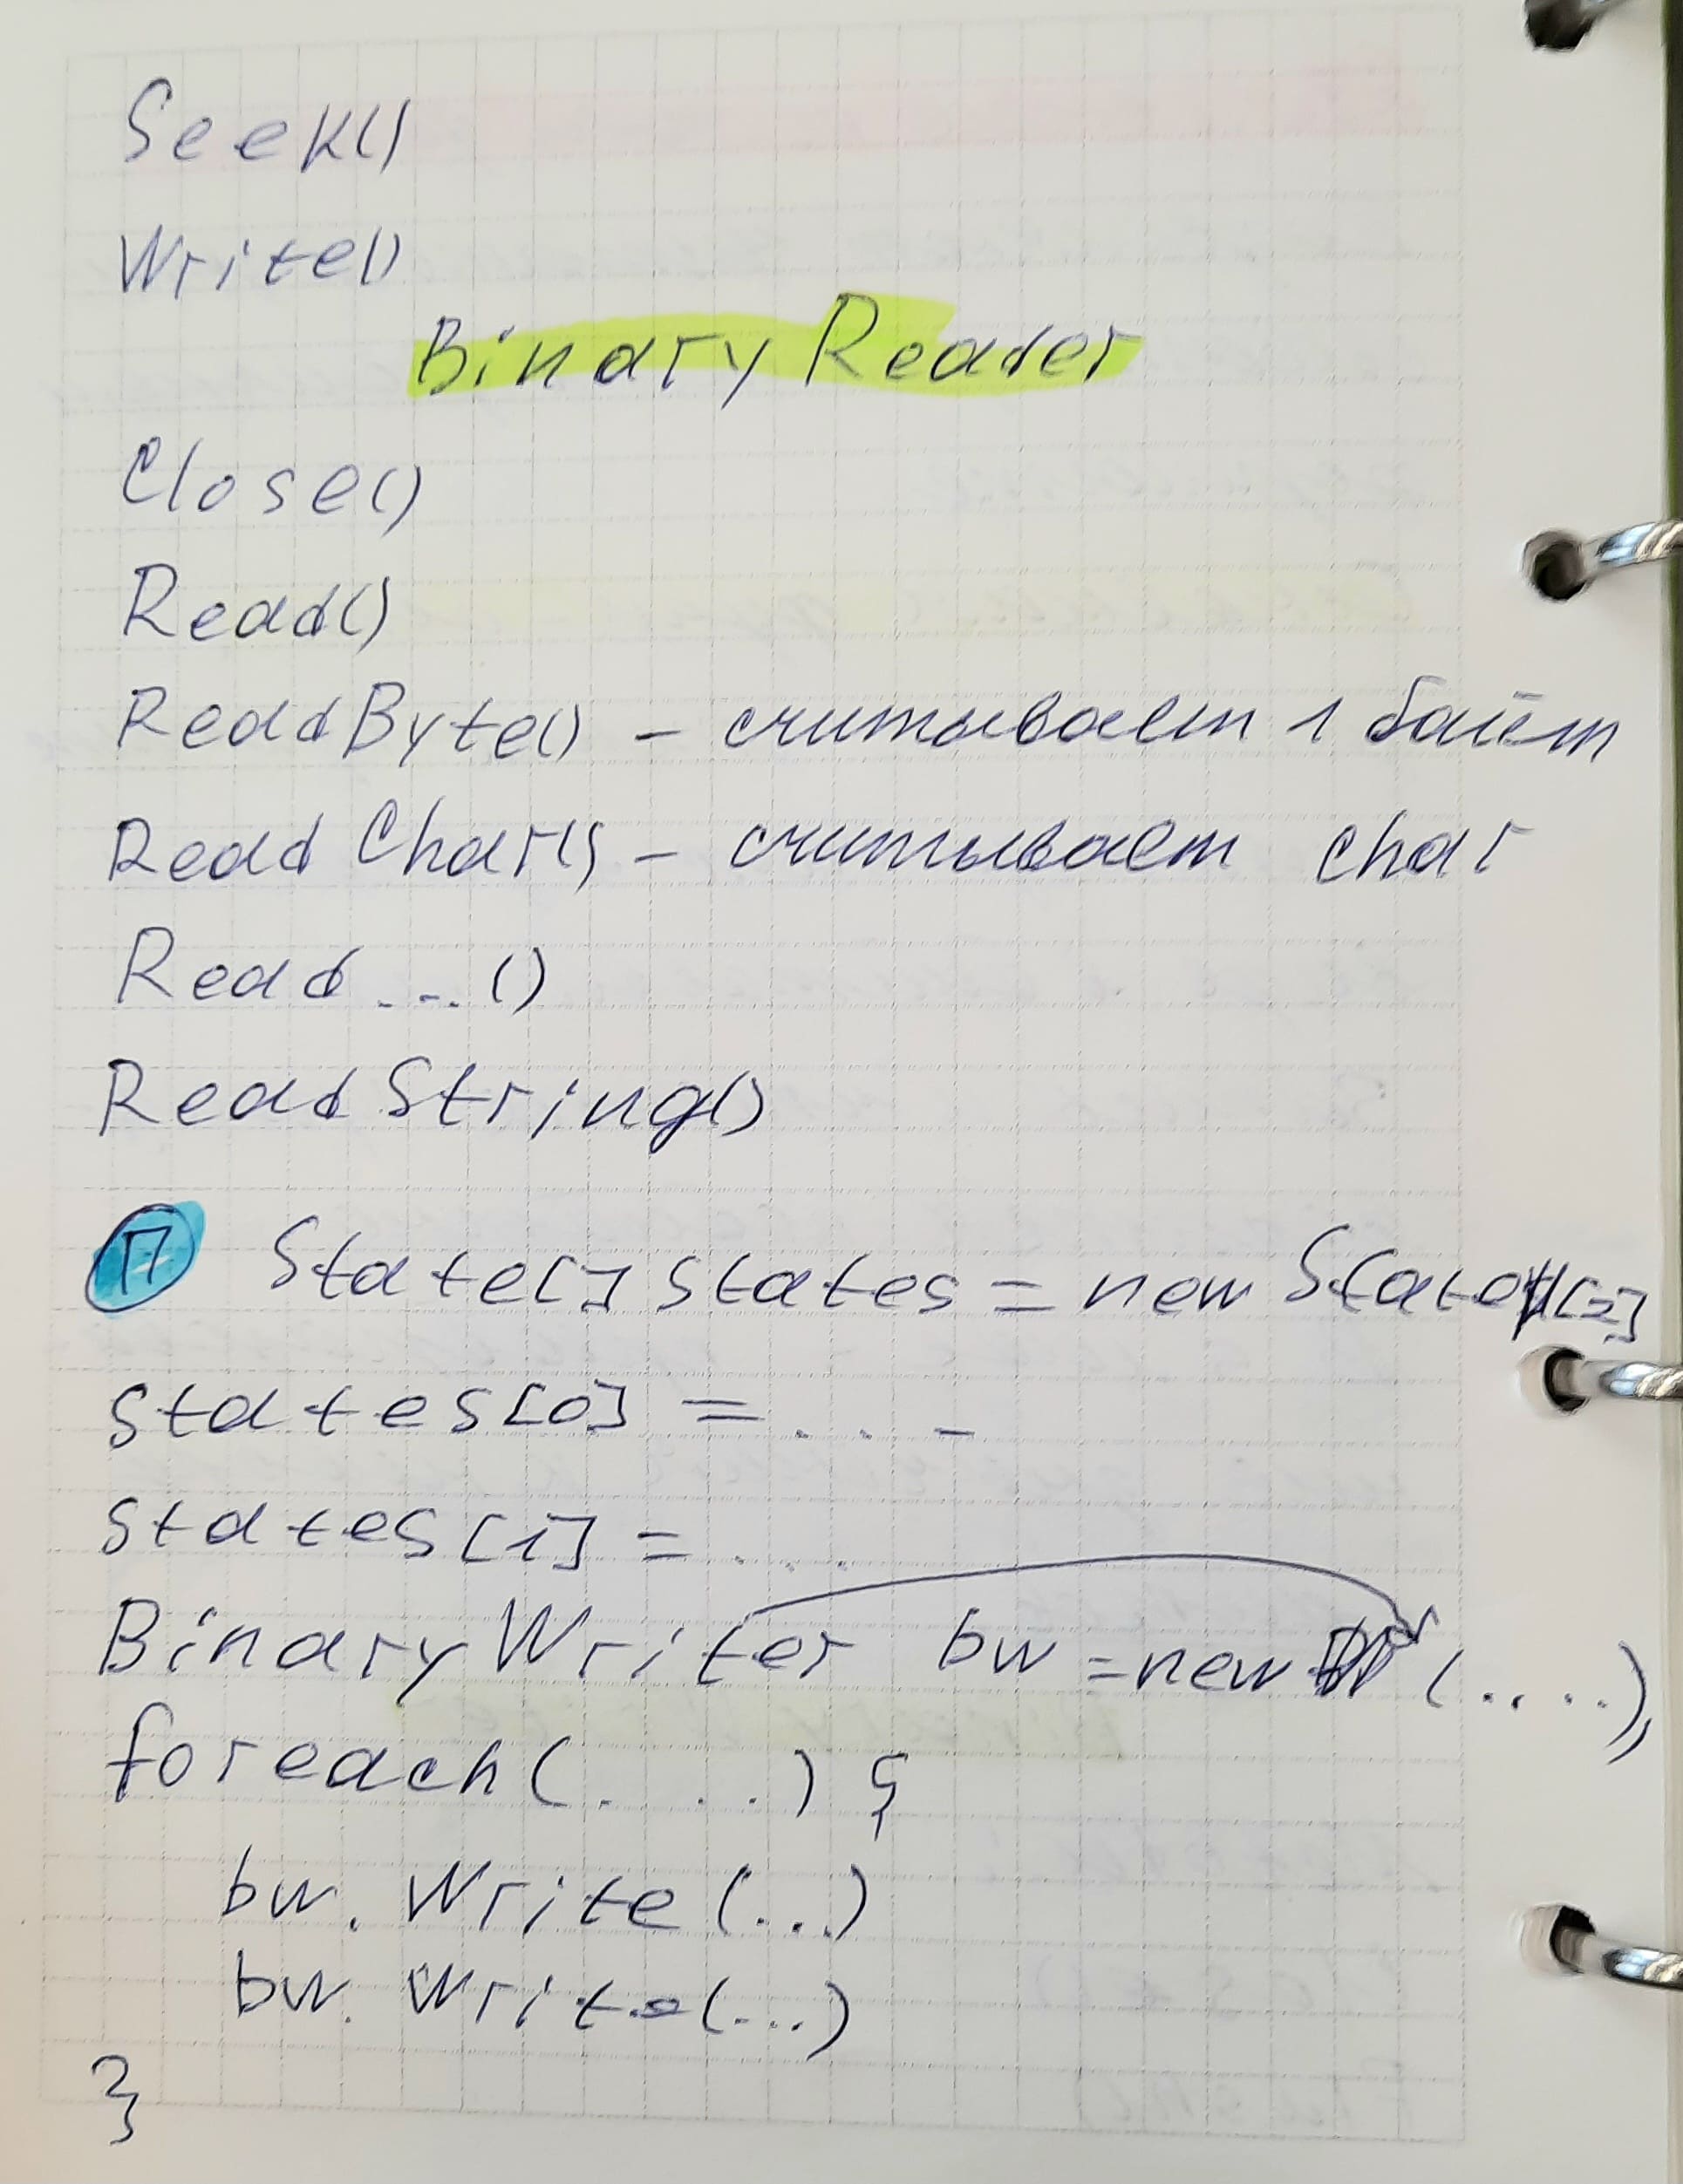 Seek()
Write()
Binary Reader
Close()
Read()
ReadByte() - считывает 1 байт
Read Char() - считывает char
Read...()
Read String()
П State[] states = new State[2]
states[0] = ....
states[1] = ....
Binary Writer bw = new (....),
foreach (....) {
bw. Write (...)
bw. Write (...)
}